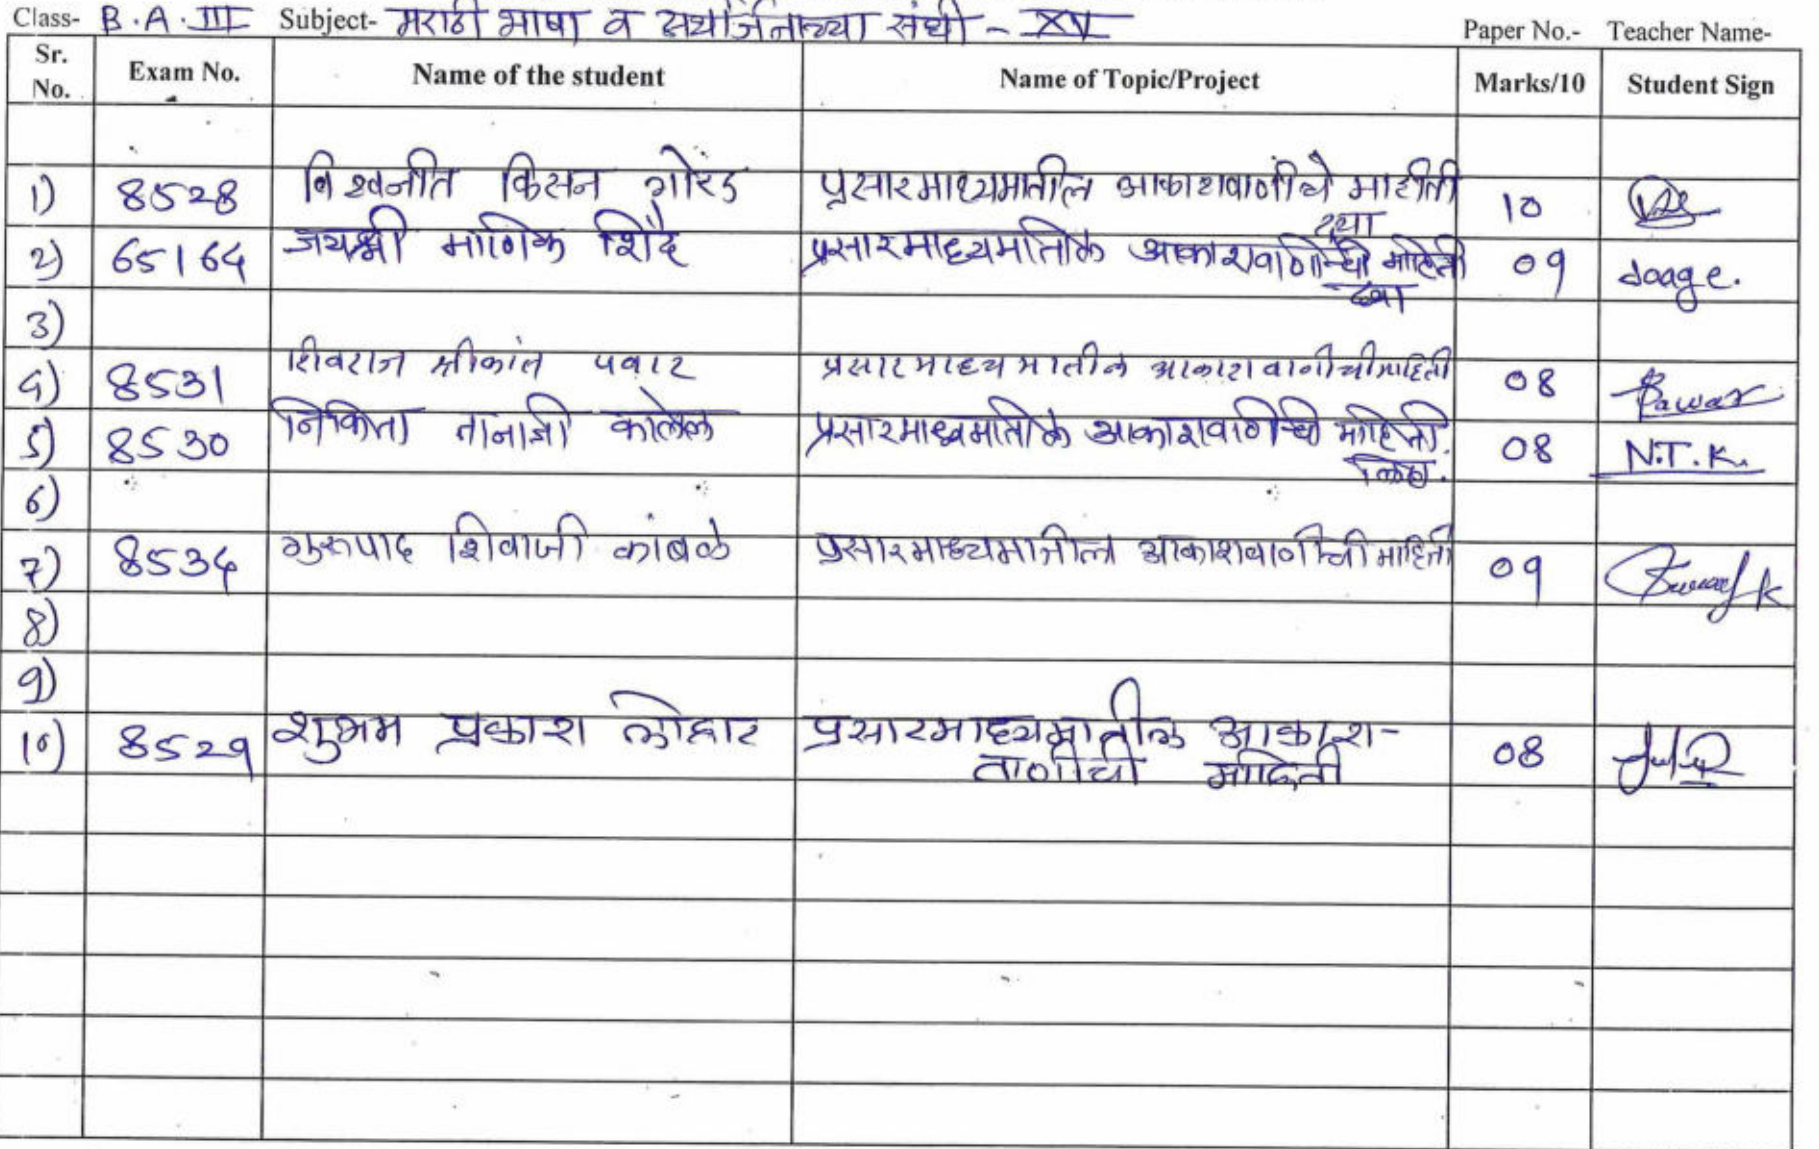 Class- B.A.III Subject- मराठी भाषा व अर्थार्जनाच्या संधी - XV Paper No.- Teacher Name-
Sr. No. Exam No. Name of the student Name of Topic/Project Marks/10 Student Sign
1) 8528 विश्वजीत किसन गोरड प्रसारमाध्यमातील आकाशवाणीचे माहीती 10
द्या
2) 65164 जयश्री माणिक शिंदे प्रसारमाध्यमातिल आकाशवाणिची माहिती 09
द्या
3)
4) 8531 शिवराज श्रीकांत पवार प्रसारमाध्यमातील आकाशवाणीची माहिती 08 Pawar
5) 8530 निकिता तानाजी कालेल प्रसारमाध्यमातिल आकाशवाणिची माहिती. 08 N.T.K.
लिहा.
6)
7) 8534 गुरुपाद शिवाजी कांबळे प्रसारमाध्यमातील आकाशवाणीची माहिती 09
8)
9)
10) 8529 शुभम प्रकाश लोहार प्रसारमाध्यमातील आकाश- 08
वाणीची माहिती